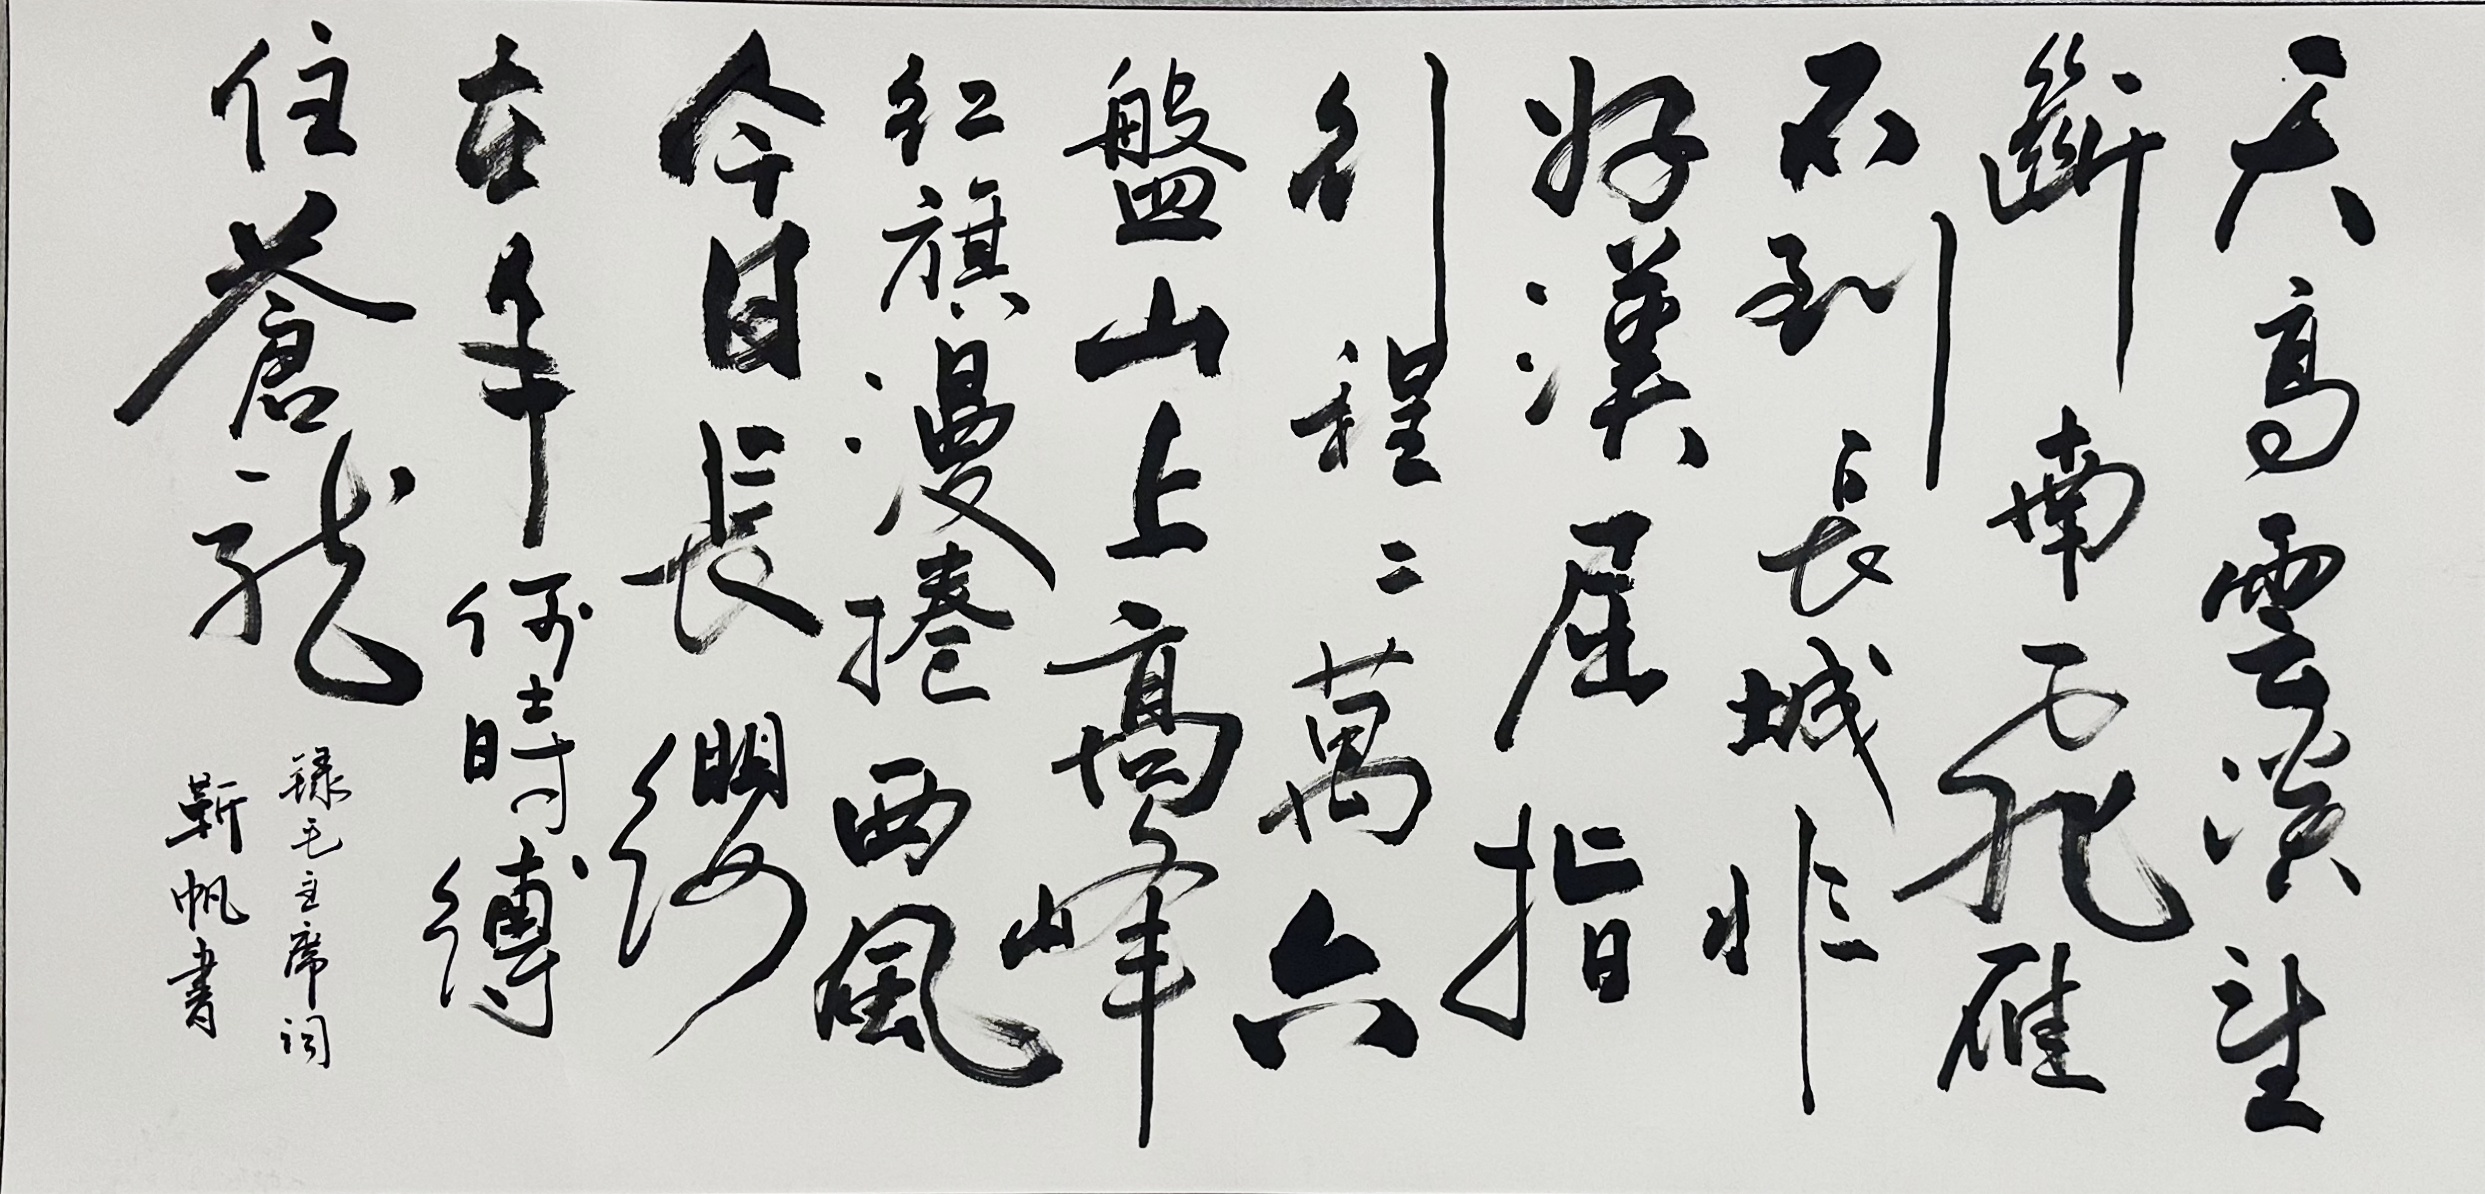 天高雲淡望
斷南飛雁
不到長城非
好漢屈指
行程二萬六
盤山上高峰
紅旗漫捲西風
今日長纓
在手何時縛
住蒼龍
録毛主席詞
靳帆書